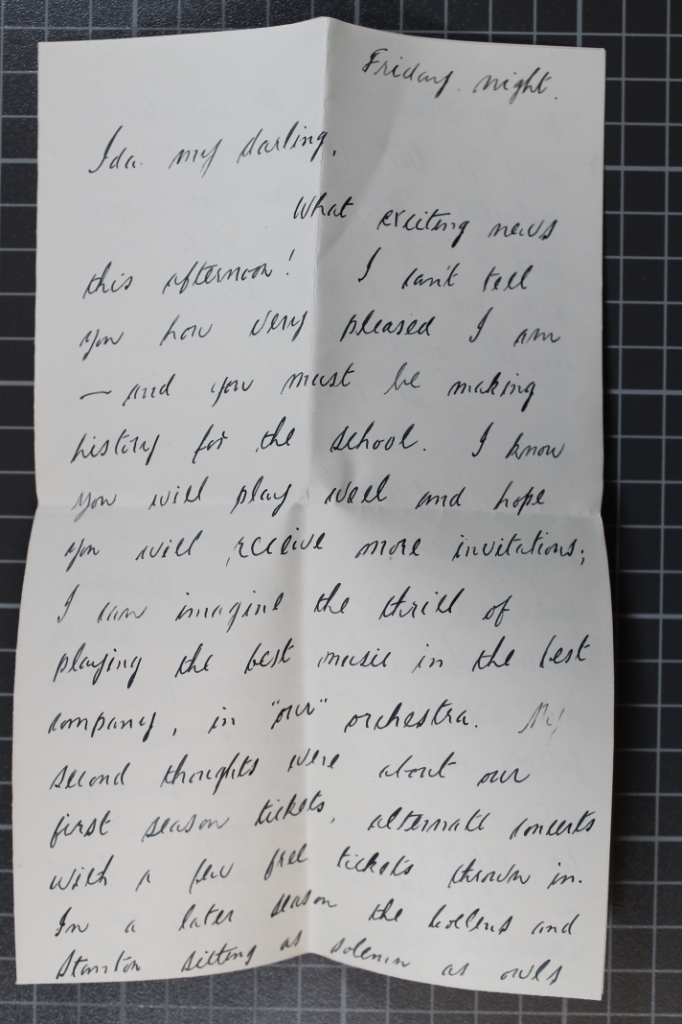 Friday night.
Ida my darling,
What exciting news
this afternoon! I can't tell
you how very pleased I am
— and you must be making
history for the school. I know
you will play well and hope
you will receive more invitations;
I can imagine the thrill of
playing the best music in the best
company, in "our" orchestra. My
second thoughts were about our
first season tickets, alternate concerts
with a few free tickets thrown in.
In a later season the and
Stanton sitting as solemn as owls